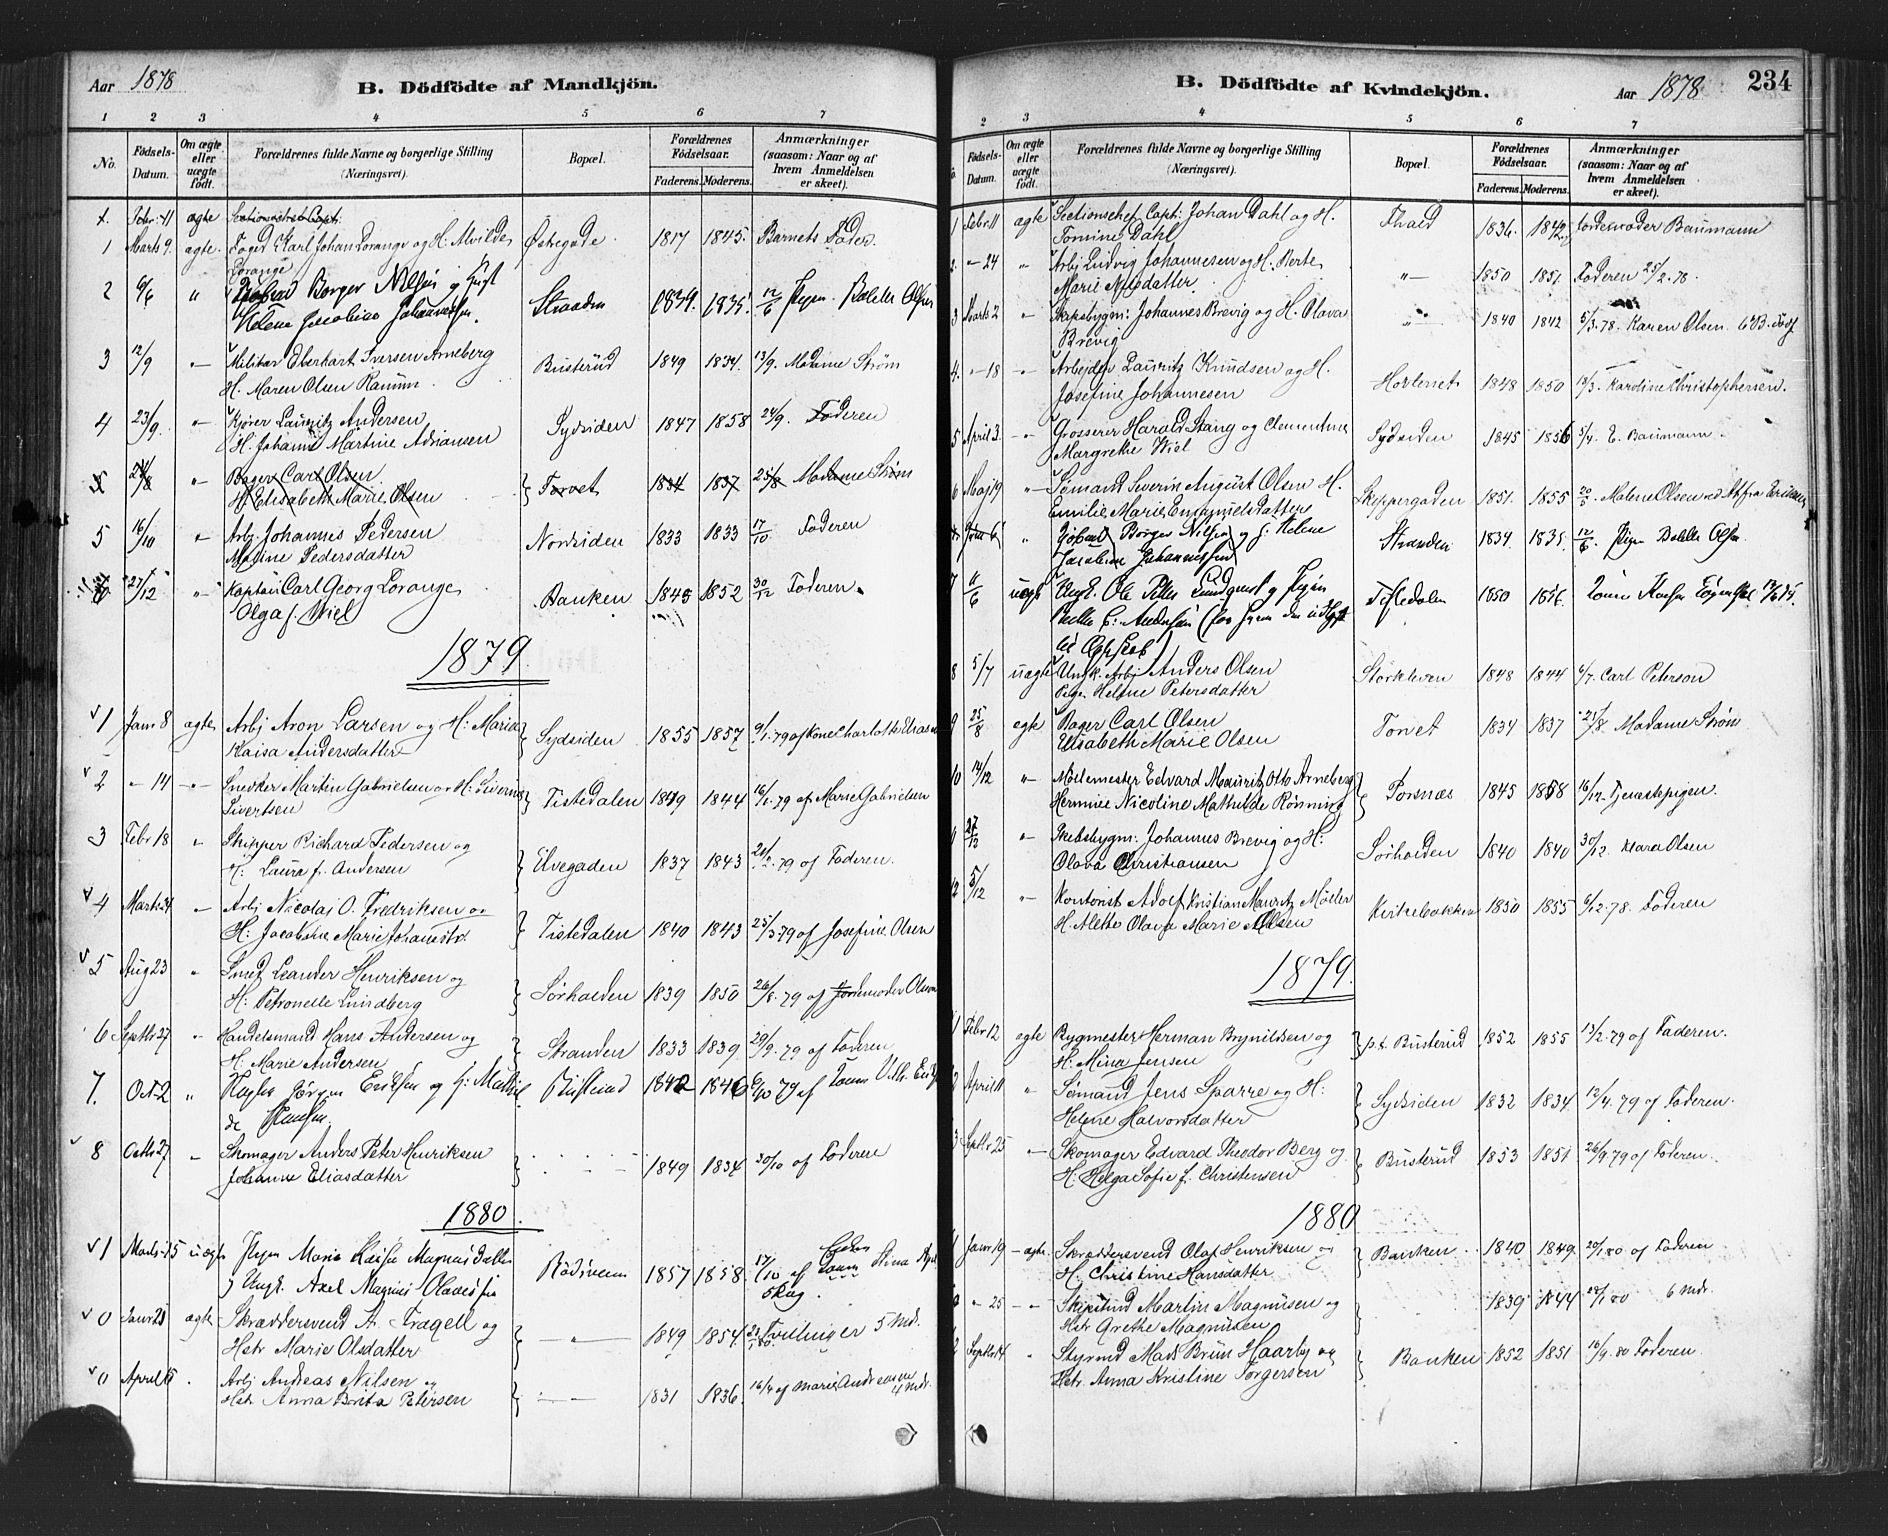 Aar 1878
B. Dödfödte af Mandkjön.
1 2 3 4 5 6 7
No. Födsels-Datum. Om ægte eller uægte födt. Forældrenes fulde Navne og borgerlige Stilling (Næringsvei). Bopæl. Forældrenes Födselsaar. Faderens. Moderens. Anmærkninger (saasom: Naar og af hvem Anmeldelsen er skeet).
Febr. 11 ægte Capt:
1 Marts 9. ægte. Foged Karl Johan Lorange og H. Alvilde Østegade. 1817 1845. Barnets Fader.
Lorange
2 6/6 " Borger Nilsen og Helene Jacobine Johannessen. Stranden 1834. 1835. 12/6 Pigen Bolette Olsen
3 12/9 " Militær Eberhart Iversen Arneberg Busterud 1849 1834. 13/9. Madame Strøm
H. Maren Olsen Ramm
4 23/9. " Kjører Lauritz Andersen Sydsiden 1847 1858 24/9. Faderen
H. Johanne Martine Adriansen
5 24/8 " Bager Carl Olsen Torvet 1834 1837 25/8 Madame Strøm
H. Elisabeth Marie Olsen
5 16/10 " Arb. Johannes Pedersen Nordsiden 1833 1833 17/10 Faderen
Maline Pedersdatter
6 27/12 " Kaptain Carl Georg Lorange Banken 1845 1852 30/12 Faderen.
Olga f. Wiel
1879.
1 Janr 8 ægte Arbj Aron Larsen og H: Maria Sydsiden 1855 1857 9/1.79 af Kone Charlotte
Kaisa Andersdatter
2 " 14 " Snedker Martin Gabrielsen og H: Siverine Tistedalen 1849 1844 16/1.79 af Marie Gabrielsen
Sivertsen
3 Febr 18 " Skipper Richard Pedersen og Elvegaden 1837 1843 79 af Faderen.
H: Laura f. Andersen
4 Marts 24 " Arbj Nicolaj O. Fredriksen og Tistedalen 1840 1843 25/3 79 af Josefine Olsen
H: Jacobine Marie Johansdtr.
5 Aug 23 " Smed Leander Henriksen og Sørhalden 1839 1850 26/8.79 af Jordemoder Olsen
H: Petronelle Lundberg
6 Septbr 27 " Handelsmand Hans Andersen og Stranden 1833 1839 29/9.79 af Faderen
H: Marie Andersen
7. Oct. 2 " Jørgen Eriksen og H: Mathilde Hansen. Busterud 1842 1846 6/10 79 af
8 Octbr 27 " Skomager Anders Peter Henriksen " 1849 1834 30/10 af Faderen
Johanne Eliasdatter
1880.
1 Marts 15 uægte Pigen Maria Kaisa Magnusdatter Rødsveien 1857 1858 17/10 af Stina
og Ungk. Axel Magnus Olausen
0 Janr 25 ægte Skræddersvend A. Fragell og " 1849 1854 Tvillinger 5 Md.
Hstr Marie Olsdatter
0 April 15 " Arbj Andreas Nilsen og " 1831 1836. 16/4 af Marie Andreasen 4 Mdr.
Hstr Anna Brita Petersen
B. Dödfödte af Kvindekjön. Aar 1878. 234
2 3 4 5 6 7
Födsels-Datum. Om ægte eller uægte födt. Forældrenes fulde Navne og borgerlige Stilling (Næringsvei). Bopæl. Forældrenes Födselsaar. Faderens. Moderens. Anmærkninger (saasom: Naar og af hvem Anmeldelsen er skeet).
1 Febr. 11 ægte Sectionschef Capt: Johan Dahl og H. 1836. 1842 Jordemoder Baumann
Tomine Dahl
2. " 24 " Arbj Ludvig Johannesen og H. Berte " 1850 1851 Faderen 25/2.78.
Marie Nilsdatter
3 Marts 2 " Skibsbygm: Johannes Brevig og H. Olava " 1840 1842 5/3.78. Karen Olsen
Brevig
4. " 18 " Arbejder Lauritz Knudsen og H. 1848 1850 19/3. Karoline Christophersen.
Josefine Johannesen
5 April 3. " Grosserer Harald Stang og Clementine Sydsiden 1845 1856 5/4. E. Baumann
Margrethe Wiel
6 Maj 19 " Sømand Severin August Olsen H. Skippergaden 1851. 1855 20/5. Malene Olsen
Emilie Marie Emanuelsdatter
Juni 6 " Borger Nilsen og H. Helene Stranden 1834. 1835. 12/6. Pigen Bolette Olsen
Jacobine Johannessen
7 11/6 uægte Ungk. Ole Petter og Pigen Tistedalen 1850 1856.
8 5/7 uægte Ungk. Arbj Anders Olsen Størkleven 1848 1844 6/7. Carl Peterson
Pigen Helene Petersdatter
9 25/8 ægte Bager Carl Olsen Torvet 1834 1837 25/8 Madame Strøm
Elisabeth Marie Olsen
10 14/12 " Møllemester Edvard Mauritz Otto Arneberg Porsnæs 1845 1858 16/12. Tjenestepigen.
Hermine Nicoline Mathilde Rønning
11 27/12 " Skibsbygm: Johannes Brevig og H: Sørhalden 1840 1840 30/12. Klara Olsen
Olava Christiansen
12 5/12 " Kontorist Adolf Kristian Mauritz Møller Kirkebakken 1850 1855 6/12.78. Faderen
H. Alette Olava Marie Olsen
1879.
1 Febr 12 ægte Bygmester Herman Brynildsen og p.t. Busterud 1852 1855 13/2.79 af Faderen.
H: Mina Jensen
2 April 11 " Sømand Jens Sparre og H: Sydsiden 1832 1834. 12/4.79 af Faderen.
Helene Halvorsdatter
3 Septbr 25 " Skomager Edvard Theodor Berg og Busterud 1853 1851 26/9.79 af Faderen.
H: Helga Sofie f. Christensen
1880
1 Janr 19 ægte Skræddersvend Olaf Henriksen og Banken 1840 1849. 20/1 80 af Faderen
H. Christine Hansdatter
" 25 " Martin Magnusen og 1839 1844 28/1 80 6 Mdr.
Hstr Grethe Magnusen
2 Septbr 14 " Styrmd Mads Brun Haarby og Banken 1852 1851 16/9.80 Faderen.
Hstr. Anna Kristine Torgersen